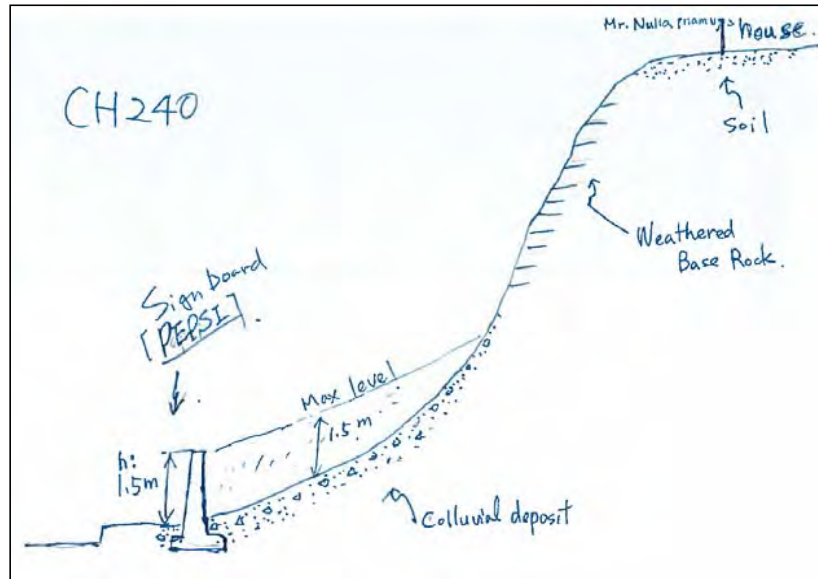 Mr. Nulla Pnamu's house.
CH240
Soil
Weathered
Base Rock.
Sign board
[PEPSI].
Max level
1.5m
h:
1.5m
Colluvial deposit